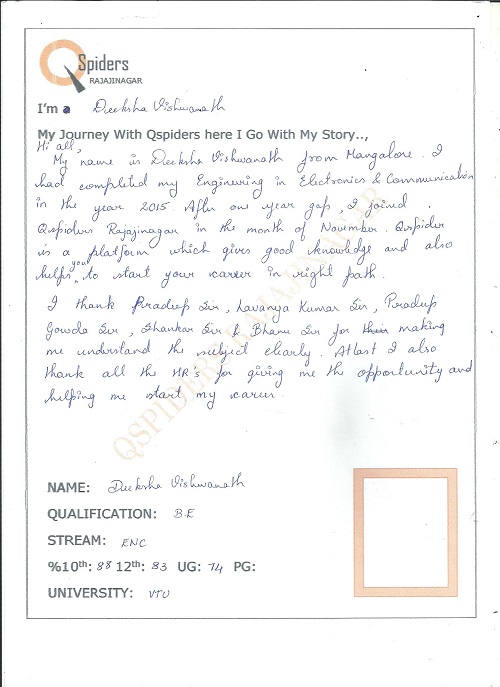 QSpiders
RAJAJINAGAR
I'm a Deeksha Vishwanath
My Journey With Qspiders here I Go With My Story..,
Hi all,
My name is Deeksha Vishwanath from Mangalore. I
had completed my Engineering in Electronics & Communication
in the year 2015. After one year gap, I joined
Qspiders Rajajinagar in the month of November. Qspider
is a platform which gives good knowledge and also
helps you to start your career in right path.
I thank Pradeep Sir, Lavanya Kumar Sir, Pradeep
Gowda Sir, Shankar Sir & Bhanu Sir for their making
me understand the subject clearly. Atlast I also
thank all the HR's for giving me the opportunity and
helping me start my career.
QSPIDERS RAJAJINAGAR
NAME: Deeksha Vishwanath
QUALIFICATION: B.E
STREAM: ENC
%10th: 88 12th: 83 UG: 74 PG:
UNIVERSITY: VTU